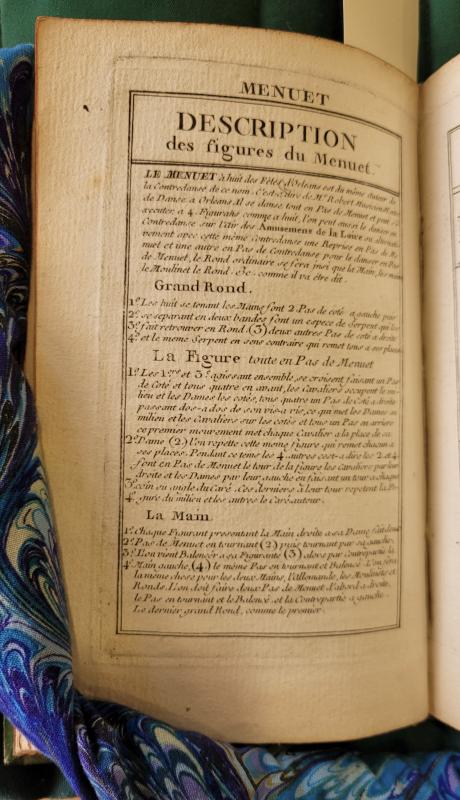 MENUET
DESCRIPTION
des figures du Menuet.
LE MENUET à huit des Fêtes d'Orleans est du même Auteur de
la Contredanse de ce nom. C'est-a-dire de Mr. Robert
de Danse a Orleans. Il se danse tout en Pas de Menuet et peut s'e
xecuter, a 4. Figurans comme a huit, l'on peut aussi le danser en
Contredanse sur l'air des Amusemens de la Loire ou alterna
vement avec cette même Contredanse une Reprise en Pas de Me
nuet et une autre en Pas de Contredanse, pour le danser en Pas
de Menuet, le Rond ordinaire se fera ainsi que la Main, les mains
le Moulinet le Rond. &c. comme il va etre dit.
Grand Rond.
1º. Les huit se tenant les Mains font 2. Pas de coté a gauche puis
2º. se separant en deux bandes font un espece de Serpent qui les
3º. fait retrouver en Rond. (3) deux autres Pas de coté a droite
4º. et le meme Serpent en sens contraire qui remet tous a ses places
La Figure toute en Pas de Menuet
1º. Les 1ers. et 3e. agissant ensemble, se croisent faisant un Pas
de Coté et tous quatre en avant, les Cavaliers occupent le mi-
lieu et les Dames les cotés, tous quatre un Pas de Coté a droite
passant dos-a-dos de son vis-a-vis, ce qui met les Dames au
milieu et les Cavaliers sur les cotés et tous un Pas en arriere
ce premier mouvement met chaque Cavalier a la place de sa
2º. Dame (2) l'on repette cette meme figure qui remet chacun a
ses places. Pendant ce tems les 4. autres cest-a-dire les 2. et 4.
font en Pas de Menuet le tour de la figure les Cavaliers par leur
droite et les Dames par leur gauche en faisant un tour a chaque
3º. coin ou angle du Caré. Ces derniers à leur tour repetent la Fi-
4º. gure du milieu et les autres le Caré autour.
La Main
1º. Chaque Figurant presentant la Main droite a sa Dame fait deux
2º. Pas de Menuet en tournant (2) puis tournant par sa gauche
3º. L'on vient Balancer a sa Figurante (3) alors par Contrepartie la
4º. Main gauche (4) le même Pas en tournant et Balencé. L'on fera
la même chose pour les deux Mains, l'allemande, les Moulinets et
Ronds. L'on doit faire deux Pas de Menuet d'abord a droite,
le Pas en tournant et le Balencé, et la Contrepartie a gauche.
Le dernier grand Rond, comme le premier.